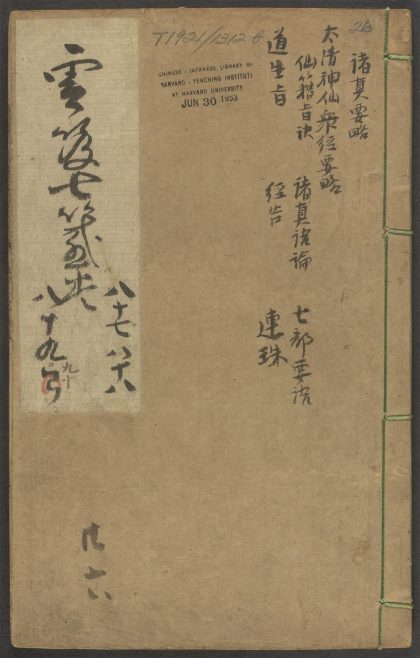 26
T1921/1312 6
CHINESE-JAPANESE LIBRARY OF
HARVARD-YENCHING INSTITUTE
AT HARVARD UNIVERSITY
JUN 30 1953
諸真要略
太清神仙衆經要略
仙籍旨訣 諸真語論 七部要語
道生旨 經告 連珠
雲笈七籤
八十七 八十八
八十九
九十
廿六